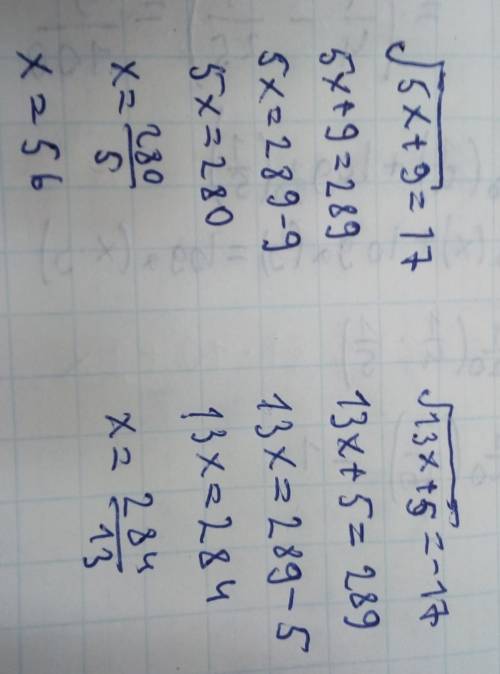 √5x+9=17
5x+9=289
5x=289-9
5x=280
x=280/5
x=56
√13x+5=-17
13x+5=289
13x=289-5
13x=284
x=284/13